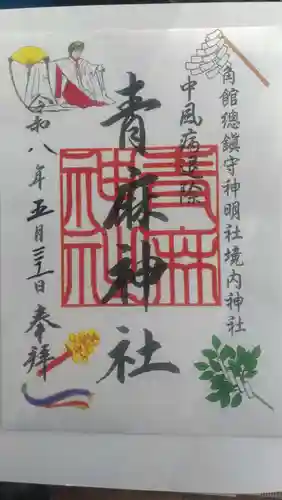 角館總鎮守神明社境内神社
中風病退除
青麻神社
青麻神社
令和八年五月三十一日 奉拝